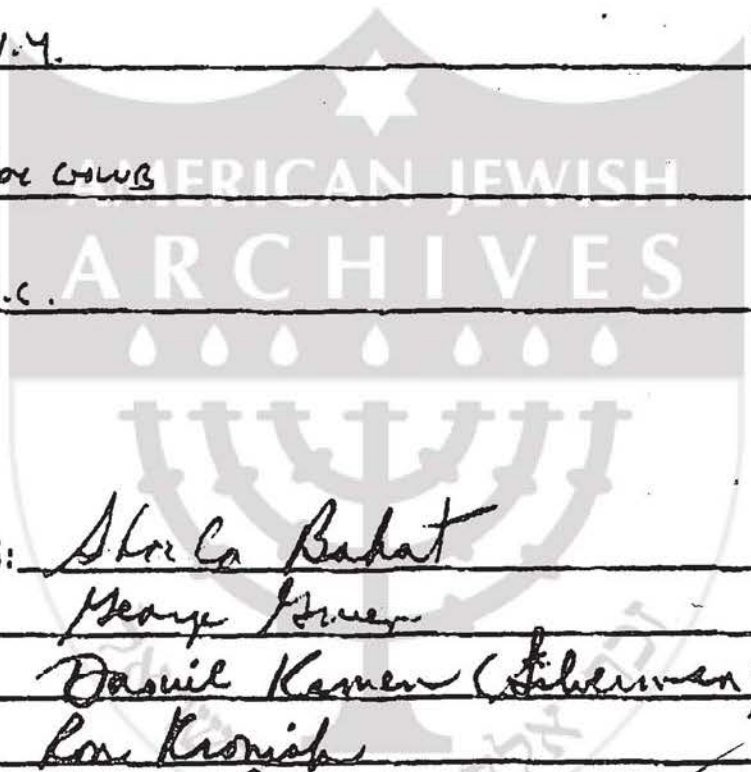 .Y.
AMERICAN JEWISH
ARCHIVES
.C.
: Shula Bahat
George Gruen
Kamen (Silverman
Ron Kronish